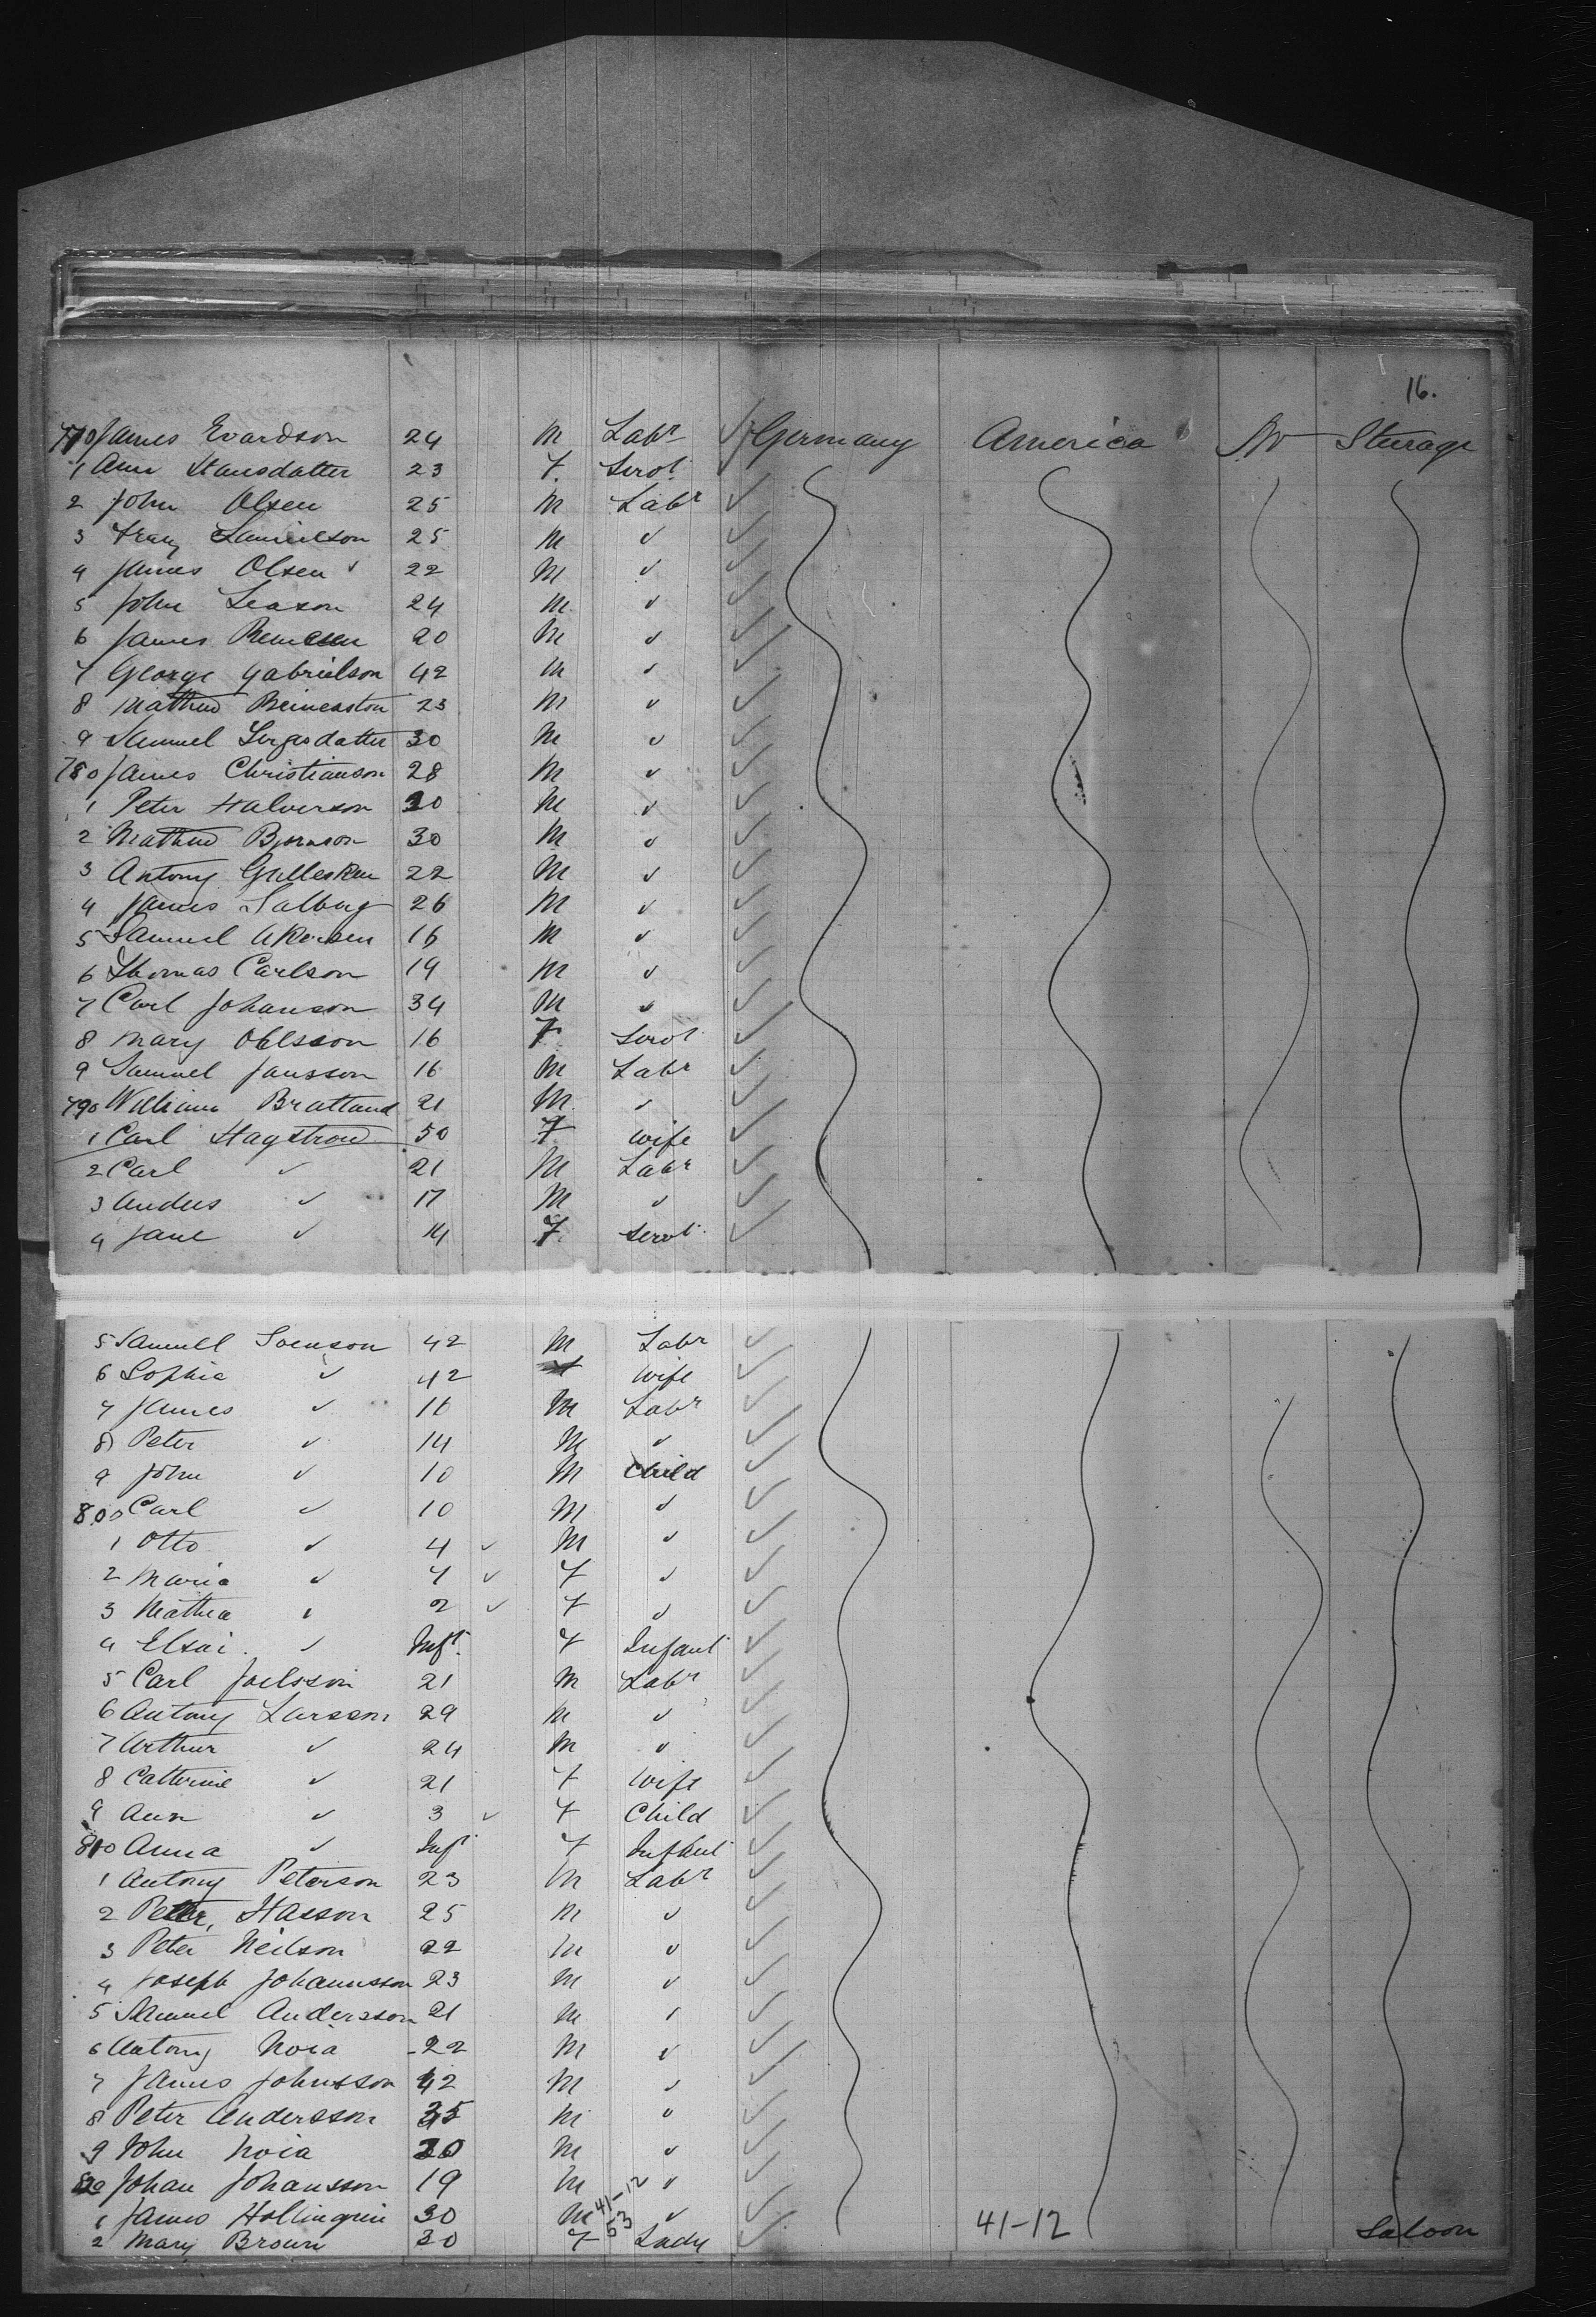 16.
770 James Evardson 24 M Labr ✓ Germany America No Sturage
1 Ann Hansdatter 23 F. Servt
2 John Olsen 25 M Labr ✓
3 Samuelson 25 M ✓ ✓
4 James Olsen ✓ 22 M ✓ ✓
5 John Leason 24 M ✓ ✓
6 James 20 M ✓ ✓
7 George Gabrielson 42 M ✓ ✓
8 Mathew 23 M ✓ ✓
9 Samuel 30 M ✓ ✓
780 James Christianson 28 M ✓ ✓
1 Peter Halverson 20 M ✓ ✓
2 Mathew Bjornson 30 M ✓ ✓
3 Antony 22 M ✓ ✓
4 James Salberg 26 M ✓ ✓
5 Samuel Akersen 16 M ✓ ✓
6 Thomas Carlson 19 M ✓ ✓
7 Carl Johanson 34 M ✓ ✓
8 Mary Ohlsson 16 F Servt ✓
9 Samuel Jansson 16 M Labr ✓
790 William Bratland 21 M ✓ ✓
1 Carl Hagstrom 50 F wife ✓
2 Carl ✓ 21 M Labr ✓
3 Anders ✓ 17 M ✓ ✓
4 Jane ✓ 14 F. Servt. ✓
5 Samuell Svenson 42 M Labr ✓
6 Sophia ✓ 42 F wife ✓
7 James ✓ 16 M Labr ✓
8 Peter ✓ 14 M ✓ ✓
9 John ✓ 10 M Child ✓
800 Carl ✓ 10 M ✓ ✓
1 Otto ✓ 4 ✓ M ✓ ✓
2 Maria ✓ 4 ✓ F ✓ ✓
3 Mathea ✓ 2 ✓ F ✓ ✓
4 Elsai ✓ Inft. F Infant ✓
5 Carl Joelsson 21 M Labr ✓
6 Antony Larsson 29 M ✓ ✓
7 Arthur ✓ 24 M ✓ ✓
8 Catterine ✓ 21 F Wife ✓
9 Ann ✓ 3 ✓ F Child ✓
810 Anna ✓ Inft F Infant ✓
1 Antony Peterson 23 M Labr ✓
2 Peter, Hasson 25 M ✓ ✓
3 Peter Neilson 22 M ✓ ✓
4 Joseph Johannsson 23 M ✓ ✓
5 Samuel Andersson 21 M ✓ ✓
6 Antony Noia 22 M ✓ ✓
7 James Johnsson 42 M ✓ ✓
8 Peter Andersson 35 M ✓ ✓
9 John Noia 20 M ✓ ✓
820 Johan Johansson 19 M ✓ ✓
1 James 30 M 41-12 ✓ ✓ 41-12
2 Mary Brown 30 F 53 Lady ✓ Saloon